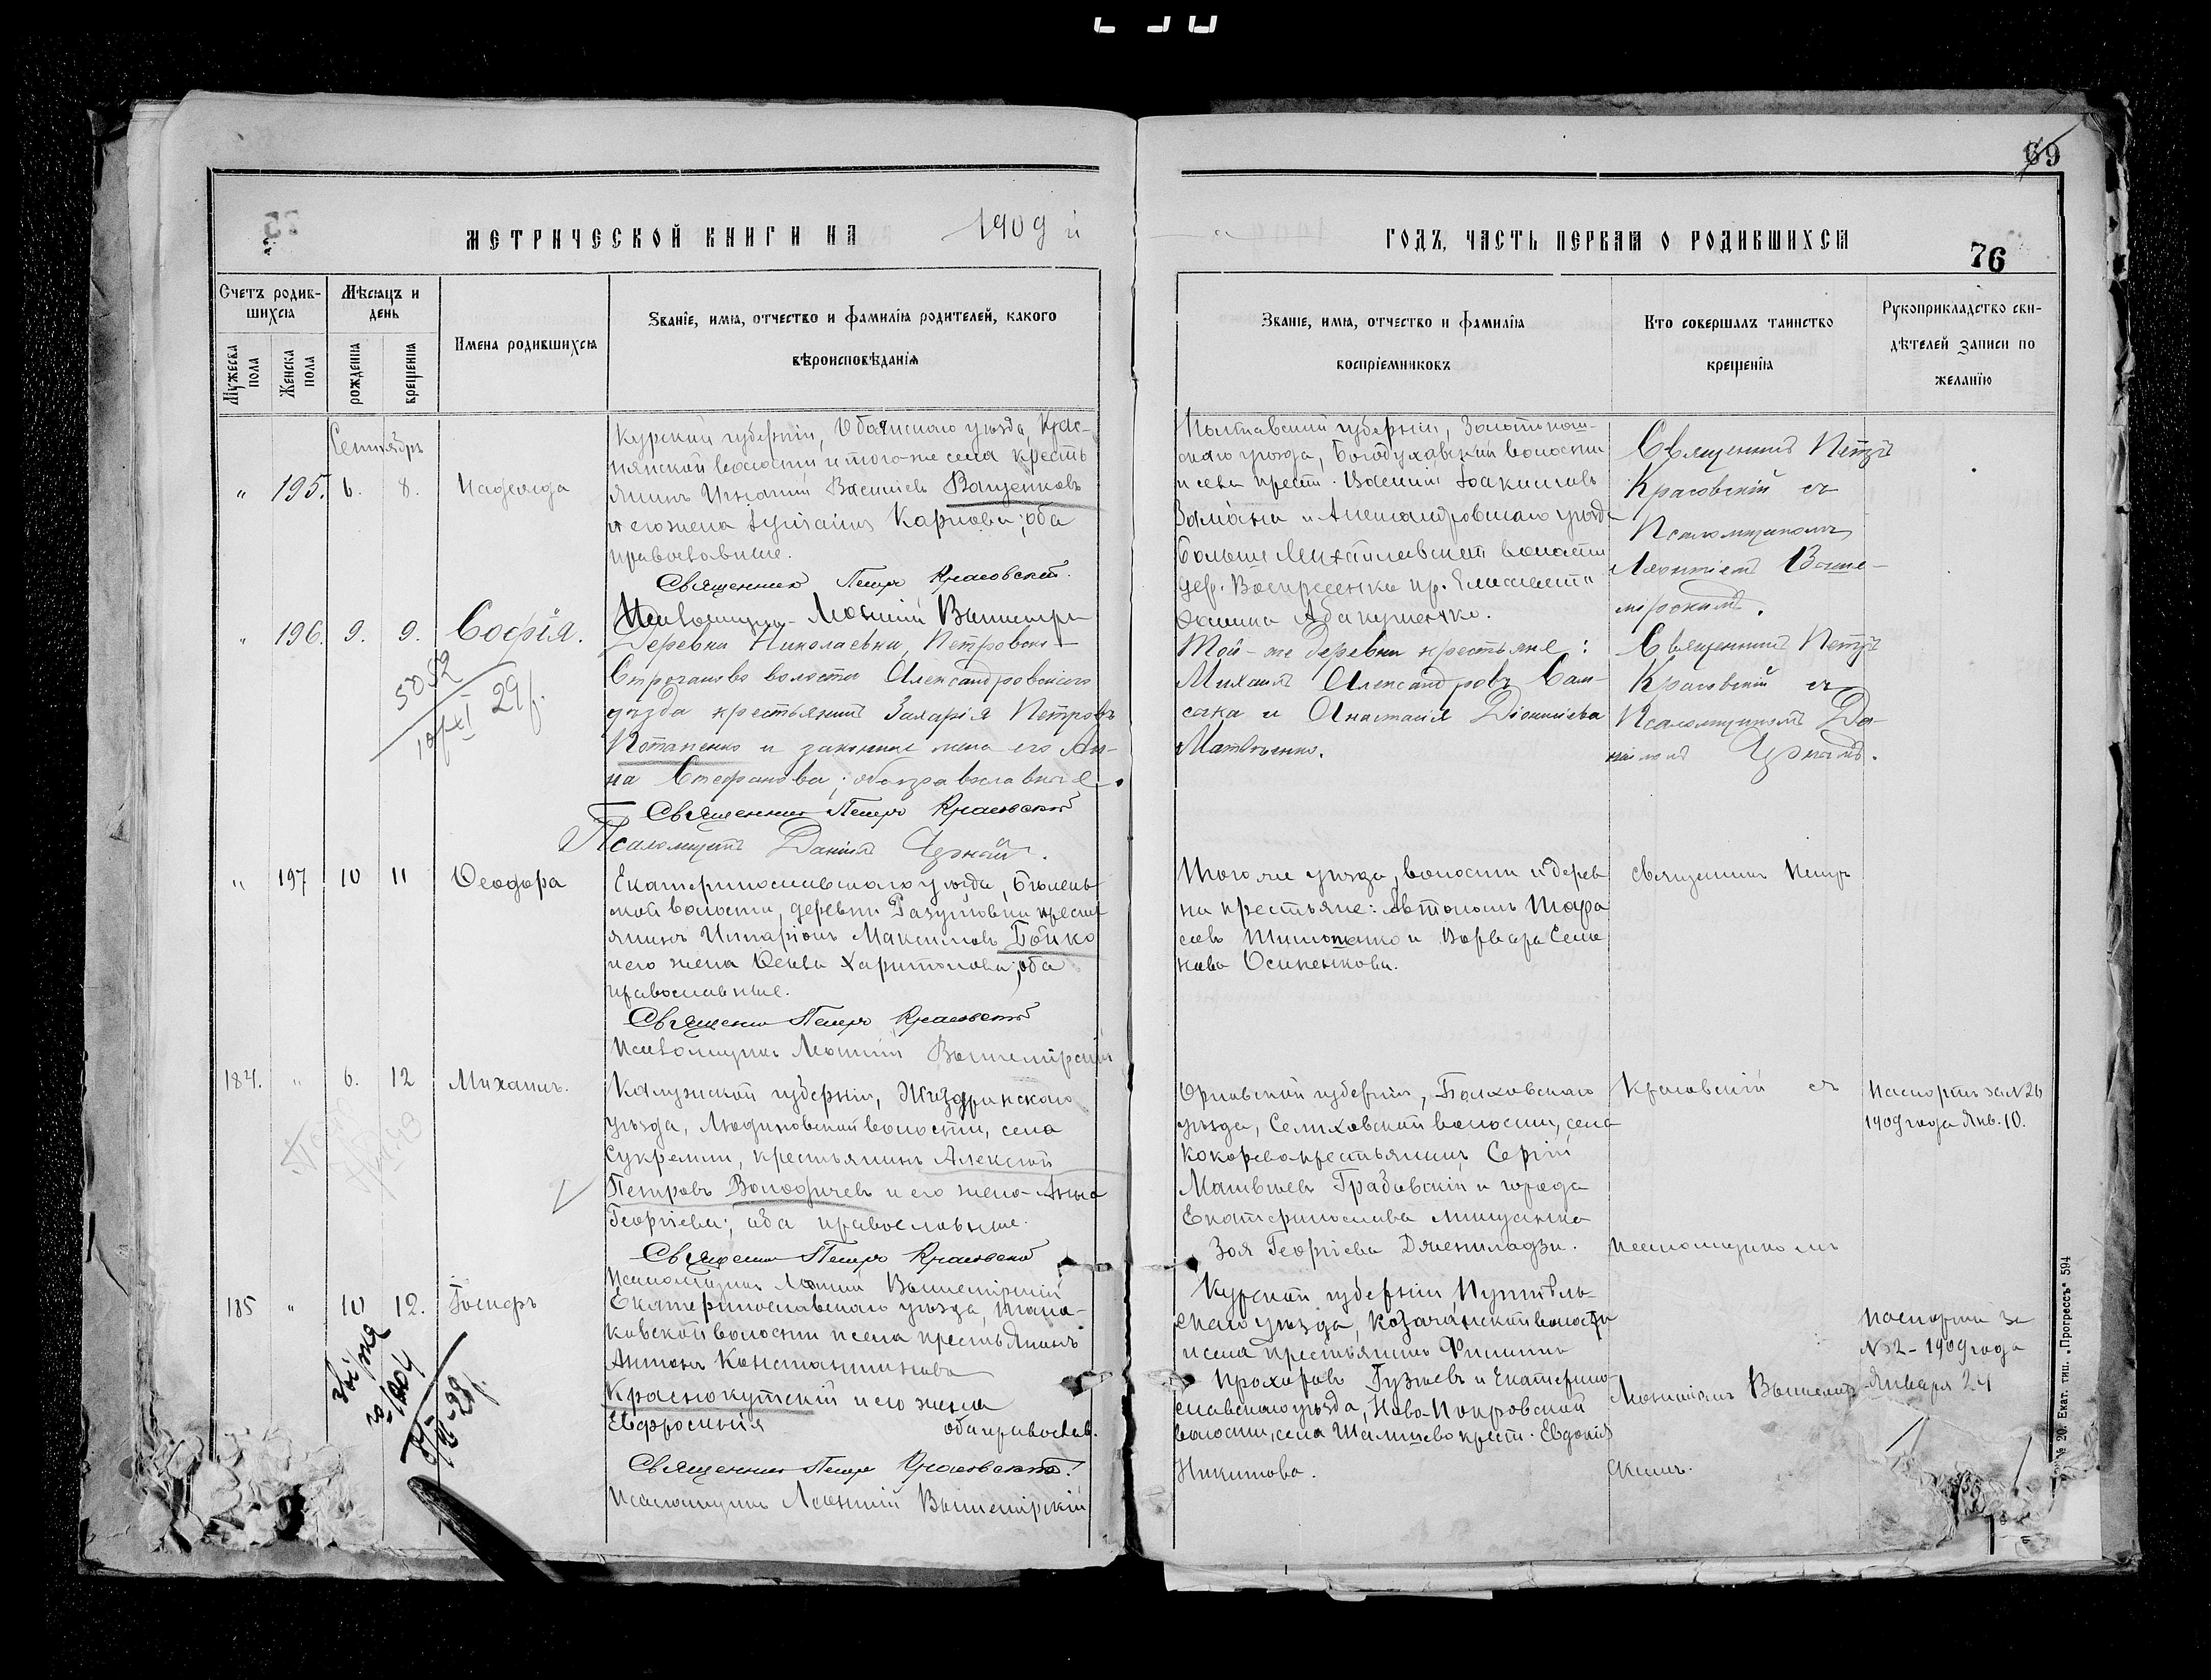 69
МЕТРИЧЕСКОЙ КНИГИ НА 1909 й
ГОДЪ, ЧАСТЬ ПЕРВАЯ О РОДИВШИХСЯ
76
Счетъ родившихся
Мужеска пола
Женска пола
Мѣсяцъ и день
рожденія
крещенія
Имена родившихся
Званіе, имя, отчество и фамилія родителей, какого
вѣроисповѣданія
Званіе, имя, отчество и фамилія
воспріемниковъ
Кто совершалъ таинство
крещенія
Рукоприкладство сви-
дѣтелей записи по
желанію
Сентябрь
" 195. 6. 8. Надежда
Курской губерніи, Обоянскаго уѣзда, Крас-
нянской волости и того-же села кресть
янинъ Игнатій Васильевъ Ващенковъ
и его жена Карпова; оба
православные.
Священникъ Петръ Красовскій.
Псаломщикъ Леонтій
Полтавской губерніи, Золотонош-
скаго уѣзда, Богодуховской волости
и села крест. Василій Іоакимовъ
и Александровскаго уѣзда
Больше Михайловской волости
дер. Воскресенки кр.
Абакуменко.
Священникъ Петръ
Красовскій съ
Псаломщикомъ
Леонтіемъ Выше-
мірскимъ.
" 196. 9. 9. Софія.
5052
29 г.
Деревни Николаевки, Петровско-
волости Александровскаго
уѣзда крестьянинъ Захарія Петровъ
Потапенко и законная жена его Ан-
на Стефанова; оба православные.
Священникъ Петръ Красовскій
Псаломщикъ Даніилъ Чернай.
Той-же деревни крестьяне:
Михаилъ Александровъ Сам-
сика и Анастасія Діонисіева
Матвѣенко.
Священникъ Петръ
Красовскій съ
Псаломщикомъ Да-
ніиломъ
" 197 10 11 Ѳеодора
Екатеринославскаго уѣзда,
ской волости, деревни Разумовки крест
янинъ Илларіонъ Максимовъ Бойко
и его жена Харитонова; оба
православные.
Священникъ Петръ Красовскій
Псаломщикъ Леонтій Вышемірскій
Того же уѣзда, волости и дерев
ни крестьяне: Автономъ Тара
совъ и Варвара Семе
нова Осипенкова.
Священникъ Петръ
184. " 6. 12 Михаилъ.
Калужской губерніи, Жиздринскаго
уѣзда, Людиновской волости, села
Сукремли, крестьянинъ Алексѣй
Петровъ Володичевъ и его жена Анна
Георгіева; оба православные.
Священникъ Петръ Красовскій
Псаломщикъ Леонтій Вышемірскій
Орловской губерніи, Болховскаго
уѣзда, Селиховской волости, села
Кокорева крестьянинъ Сергій
Матвѣевъ Грабовскій и города
Екатеринослава мѣщанка
Зоя Георгіева
Красовскій съ
псаломщикомъ
Паспортъ за № 26
1909 года Янв. 10.
185 " 10 12. Іосифъ
Екатеринославскаго уѣзда, Тома-
ковской волости и села крестьянинъ
Антонъ Константиновъ
Краснокутскій и его жена
Евфросинія оба правосл.
Священникъ Петръ Красовскій.
Псаломщикъ Леонтій Вышемірскій
Курской губерніи Путивль-
скаго уѣзда, Козачанской волости
и села крестьянинъ Филиппъ
Прохоровъ Гузѣевъ и Екатерино-
славскаго уѣзда, Ново-Покровской
волости, села Шолохово крест. Евдокія
Никитова.
Леонтіемъ Вышемір-
скимъ.
Паспортъ за
№ 2 - 1909 года
Января 24
№ 20. Екат. тип. „Прогрессъ" 594